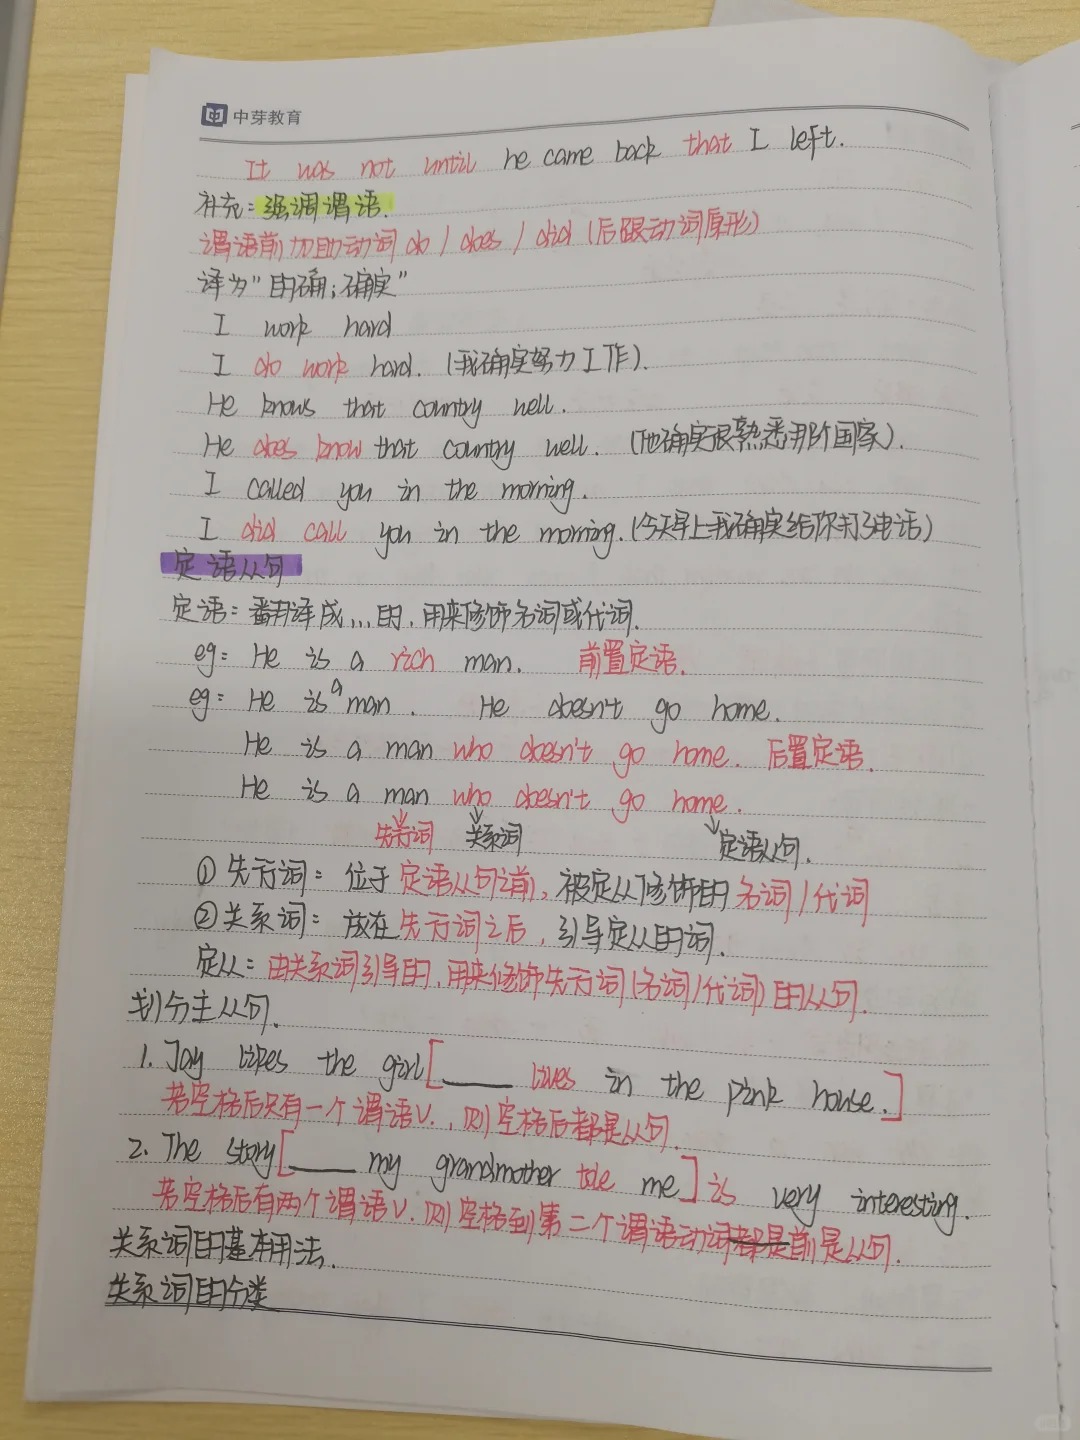 中芽教育
It was not until he came back that I left.
补充:强调谓语.
谓语前加助动词 do / does / did (后跟动词原形)
译为"的确;确实"
I work hard
I do work hard. (我确实努力工作).
He knows that country well.
He does know that country well. (他确实很熟悉那个国家).
I called you in the morning.
I did call you in the morning. (今天早上我确实给你打了电话)
定语从句
定语:翻译成...的,用来修饰名词或代词.
eg: He is a rich man. 前置定语.
eg: He is a man. He doesn't go home.
He is a man who doesn't go home. 后置定语.
He is a man who doesn't go home.
先行词 关系词 定语从句.
①先行词:位于定语从句之前,被定从修饰的名词/代词
②关系词:放在先行词之后,引导定从的词.
定从:由关系词引导的,用来修饰先行词(名词/代词)的从句.
划分主从句.
1. Jay likes the girl[____ lives in the pink house.]
若空格后只有一个谓语V.,则空格后都是从句.
2. The story[____ my grandmother tole me] is very interesting.
若空格后有两个谓语V.则空格到第二个谓语动词都是前是从句.
关系词的基本用法.
关系词的分类